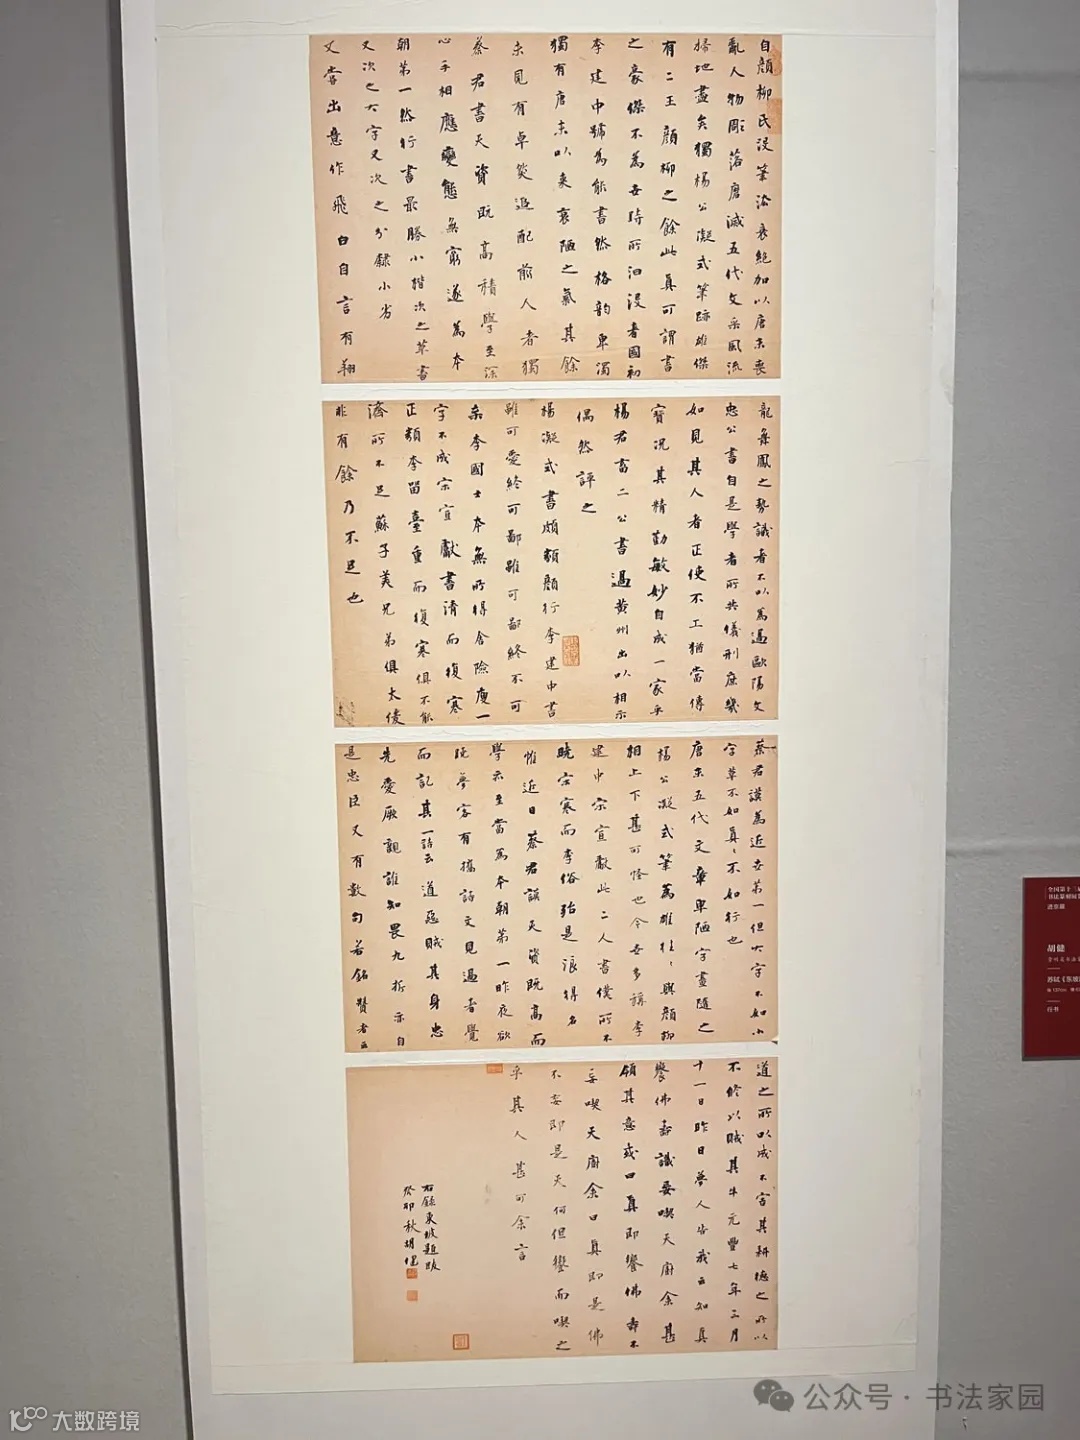 自顏柳氏沒筆法衰絕加以唐末喪
亂人物彫落磨滅五代文采風流
掃地盡矣獨楊公凝式筆跡雄傑
有二王顏柳之餘此真可謂書
之豪傑不為世時所汩沒者國初
李建中號為能書然格韻卑濁
獨有唐末以來衰陋之氣其餘
未見有卓然追配前人者獨
蔡君書天資既高積學至深
心手相應變態無窮遂為本
朝第一然行書最勝小楷次之草書
又次之大字又次之分隸小劣
又嘗出意作飛白自言有翔
龍舞鳳之勢識者不以為過歐陽文
忠公書自是學者所共儀刑庶幾
如見其人者正使不工猶當傳
寶況其精勤敏妙自成一家乎
楊君畜二公書過黃州出以相示
偶然評之
楊凝式書頗類顏行李建中書
雖可愛終可鄙雖可鄙終不可
棄李國士本無所得舍險瘦一
字不成宋宣獻書清而復寒
正類李留臺重而復寒俱不能
濟所不足蘇子美兄弟俱太俊
非有餘乃不足也
蔡君謨為近世第一但大字不如小
字草不如真、不如行也
唐末五代文章卑陋字畫隨之
楊公凝式筆為雄往、與顏柳
相上下甚可怪也今世多稱李
建中宋宣獻此二人書僕所不
曉宋寒而李俗殆是浪得名
惟近日蔡君謨天資既高而
學亦至當為本朝第一昨夜欲
曉夢客有攜詩文見過者覺
而記其一詩云道惡賊其身忠
先愛厥親誰知畏九折亦自
是忠臣又有數句若銘贊者云
道之所以成不害其耕德之所以
不修以賊其牛元豐七年三月
十一日昨日夢人告我云知真
饗佛壽識妄喫天廚余甚
領其意或曰真即饗佛壽不
妄喫天廚余曰真即是佛
不妄即是天何但饗而喫之
乎其人甚可余言
右錄東坡題跋
癸卯秋胡健
全国第十三届
书法篆刻展览
胡健
任书
公众号·书法家园
大数跨境